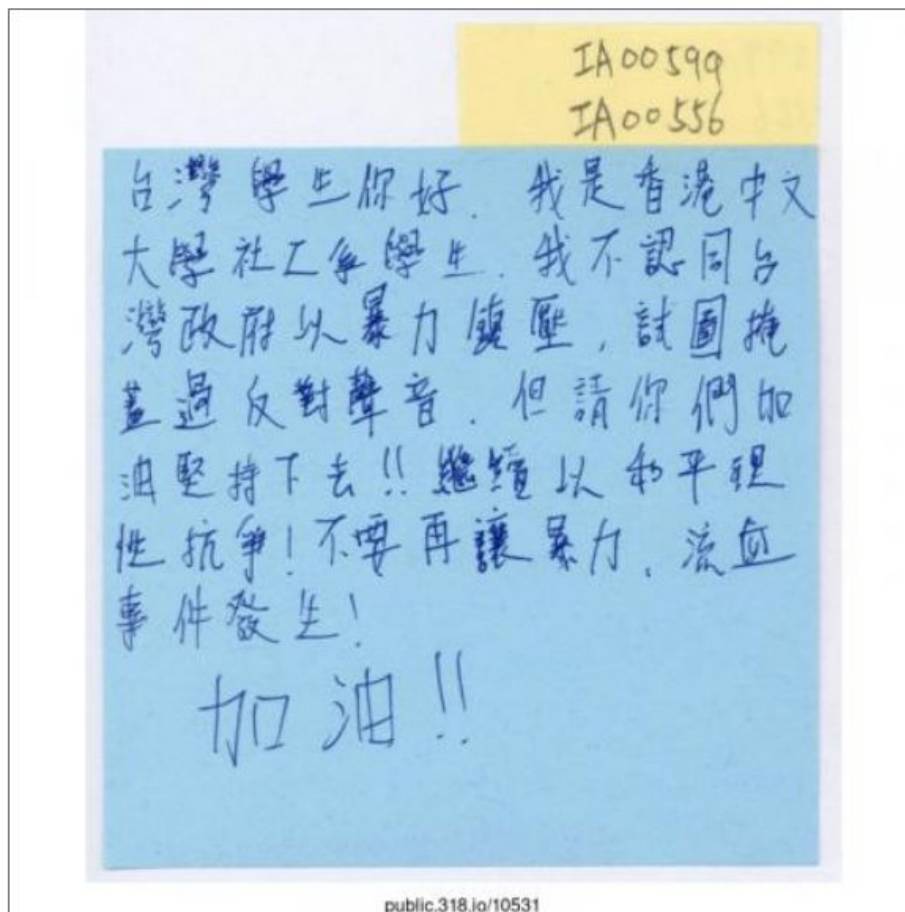 IA00599
IA00556
台灣學生你好．我是香港中文
大學社工系學生．我不認同台
灣政府以暴力鎮壓，試圖掩
蓋過反對聲音．但請你們加
油堅持下去!! 繼續以和平理
性抗爭! 不要再讓暴力、流血
事件發生!
加油!!
public.318.io/10531